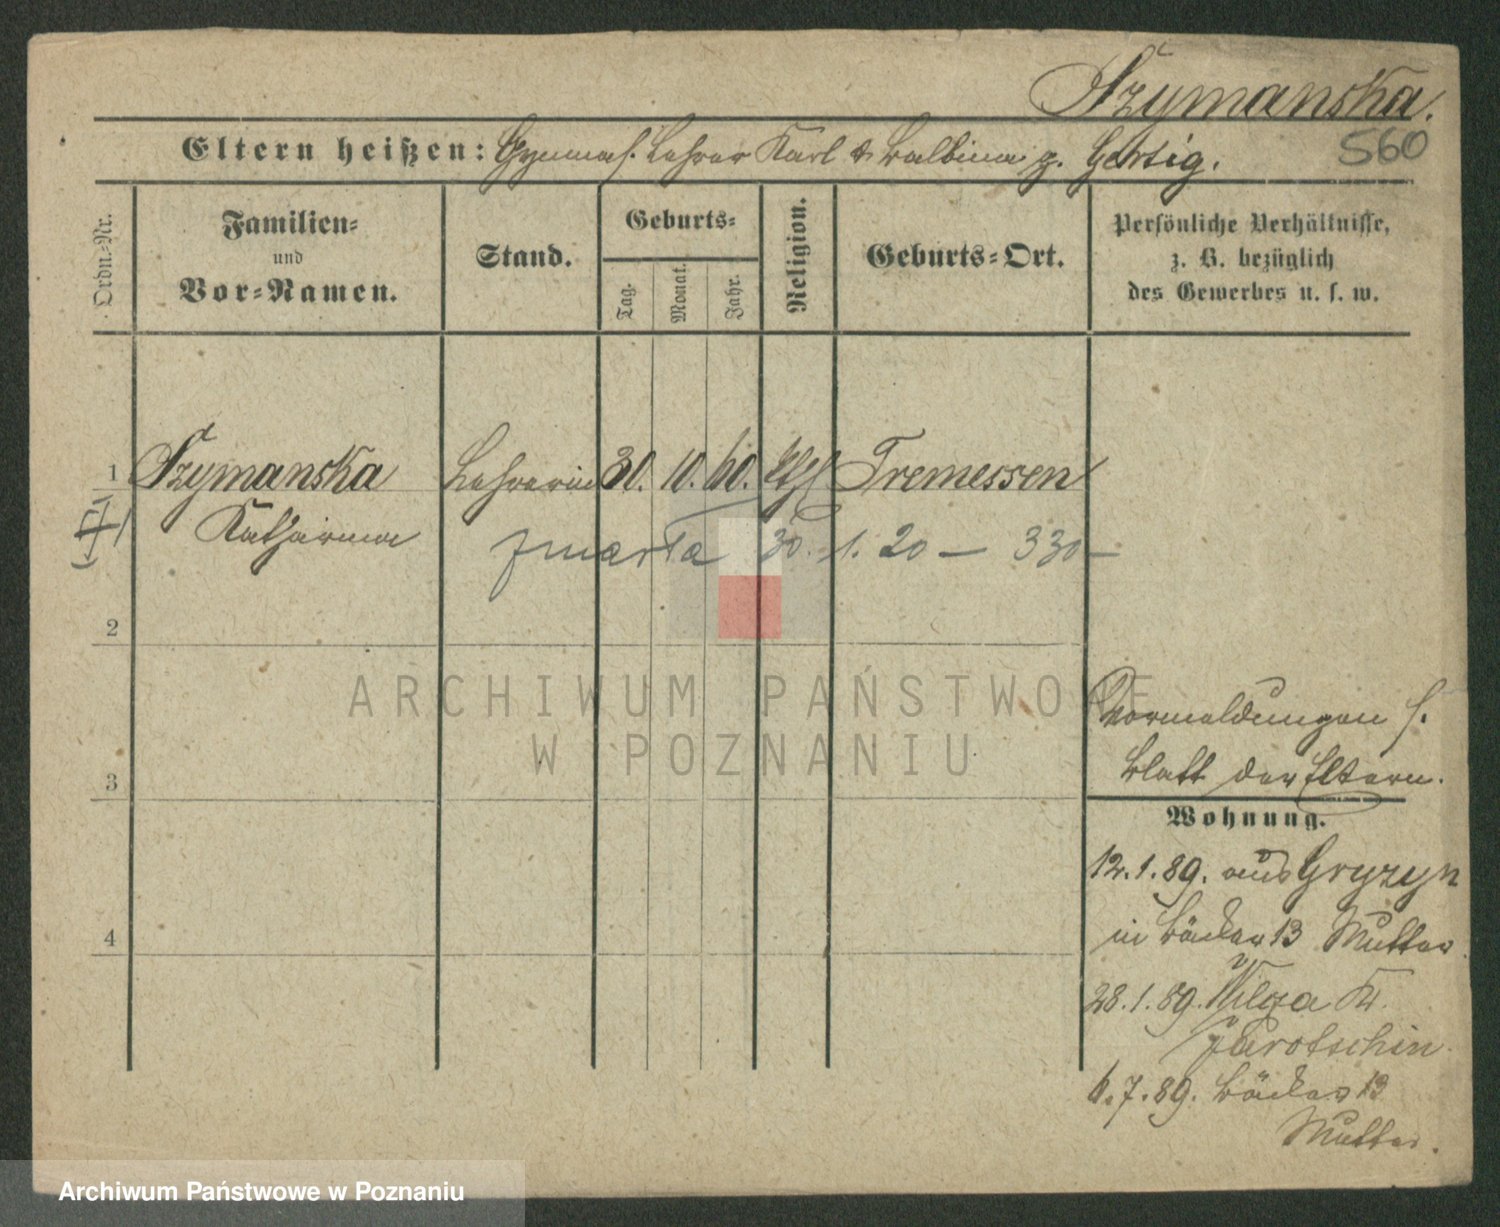 Szymanska.
560
Eltern heißen: Gymnas. Lehrer Karl & Balbina g. Gertig.
Ordn.-Nr.
Familien-
und
Vor-Namen.
Stand.
Geburts-
Tag.
Monat.
Jahr.
Religion.
Geburts-Ort.
Persönliche Verhältnisse,
z. B. bezüglich
des Gewerbes u. s. w.
1 Szymanska Lehrerin 30. 10. 60. kath Tremessen
Katharina
zmarła 30. 1. 20 — 330 —
2
ARCHIWUM PAŃSTWOWE
W POZNANIU
Vormeldungen s.
Blatt der Eltern.
3
Wohnung.
12.1.89. aus Gryzyn
in Bäcker 13 Mutter.
4
28.1.89. Wilga Kr.
Jarotschin.
6.7.89. Bäcker 13
Mutter.
Archiwum Państwowe w Poznaniu